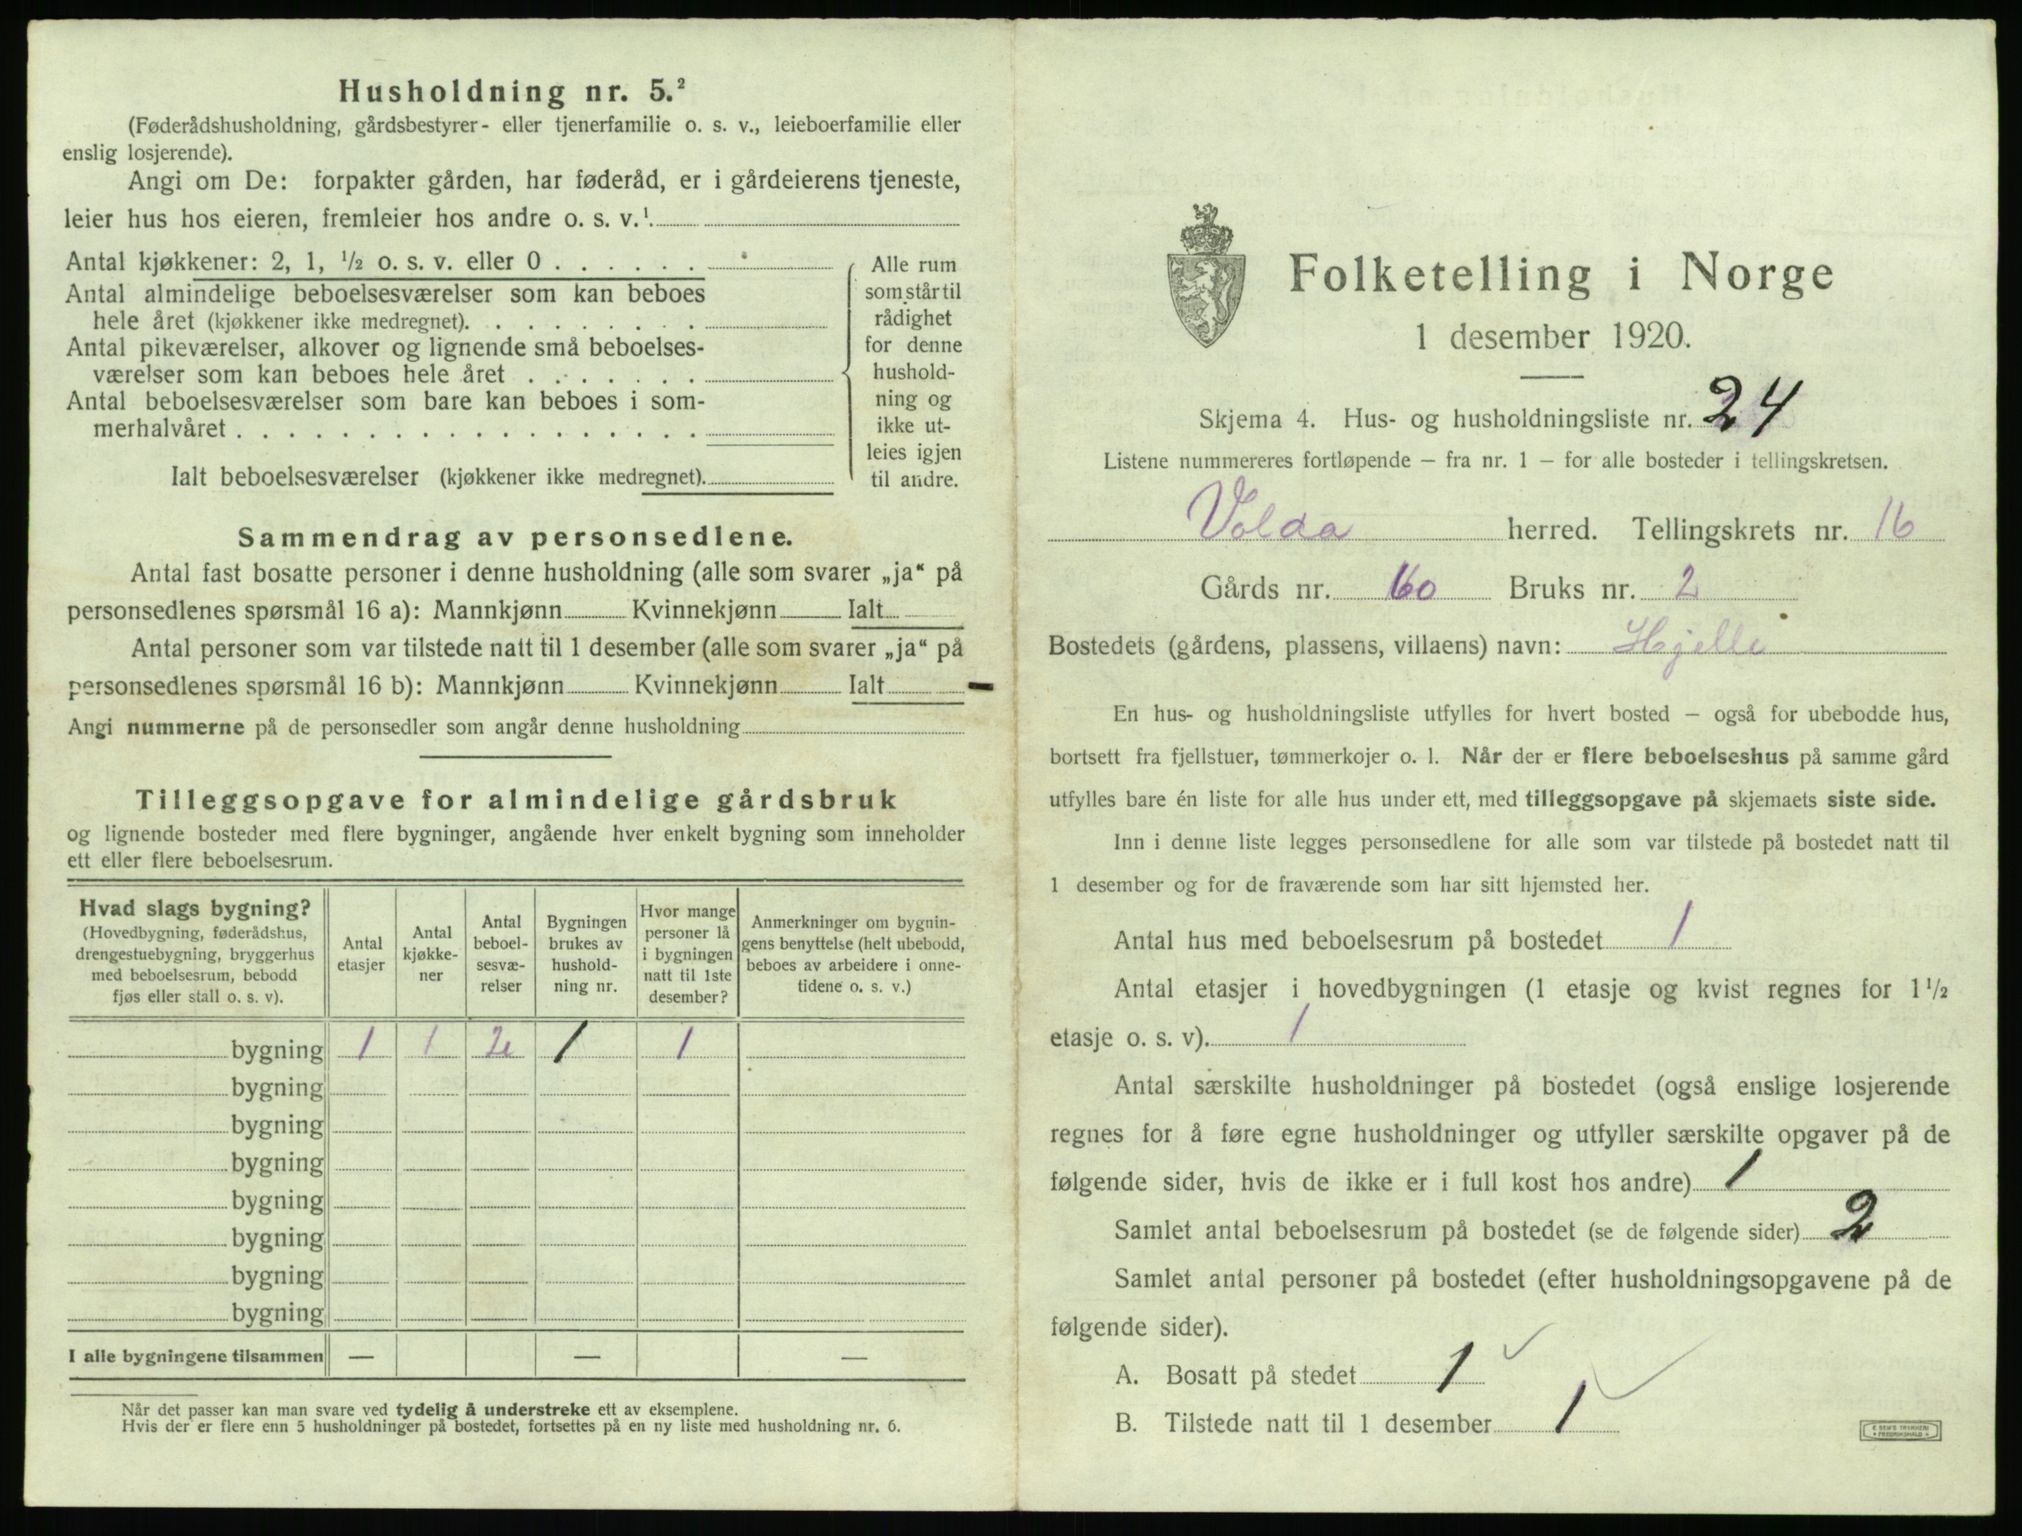 Husholdning nr. 5.²
(Føderådshusholdning, gårdsbestyrer- eller tjenerfamilie o. s. v., leieboerfamilie eller
enslig losjerende).
Angi om De: forpakter gården, har føderåd, er i gårdeierens tjeneste,
leier hus hos eieren, fremleier hos andre o. s. v.¹
Antal kjøkkener: 2, 1, ½ o. s. v. eller 0 . . . . . .
Antal almindelige beboelsesværelser som kan beboes
hele året (kjøkkener ikke medregnet). . . . . . . . .
Antal pikeværelser, alkover og lignende små beboelses-
værelser som kan beboes hele året . . . . . . .
Antal beboelsesværelser som bare kan beboes i som-
merhalvåret . . . . . . . . . . . . . . . . . .
Ialt beboelsesværelser (kjøkkener ikke medregnet).
Alle rum
som står til
rådighet
for denne
hushold-
ning og
ikke ut-
leies igjen
til andre.
Sammendrag av personsedlene.
Antal fast bosatte personer i denne husholdning (alle som svarer „ja“ på
personsedlenes spørsmål 16 a): Mannkjønn Kvinnekjønn Ialt
Antal personer som var tilstede natt til 1 desember (alle som svarer „ja“ på
personsedlenes spørsmål 16 b): Mannkjønn Kvinnekjønn Ialt
Angi nummerne på de personsedler som angår denne husholdning
Tilleggsopgave for almindelige gårdsbruk
og lignende bosteder med flere bygninger, angående hver enkelt bygning som inneholder
ett eller flere beboelsesrum.
Hvad slags bygning?
(Hovedbygning, føderådshus,
drengestuebygning, bryggerhus
med beboelsesrum, bebodd
fjøs eller stall o. s. v).
Antal
etasjer
Antal
kjøkke-
ner
Antal
beboel-
sesvæ-
relser
Bygningen
brukes av
hushold-
ning nr.
Hvor mange
personer lå
i bygningen
natt til 1ste
desember?
Anmerkninger om bygnin-
gens benyttelse (helt ubebodd,
beboes av arbeidere i onne-
tidene o. s. v.)
bygning 1 1 2 1 1
bygning
bygning
bygning
bygning
bygning
bygning
bygning
I alle bygningene tilsammen — — —
Når det passer kan man svare ved tydelig å understreke ett av eksemplene.
Hvis der er flere enn 5 husholdninger på bostedet, fortsettes på en ny liste med husholdning nr. 6.
Folketelling i Norge
1 desember 1920.
Skjema 4. Hus- og husholdningsliste nr. 24
Listene nummereres fortløpende – fra nr. 1 – for alle bosteder i tellingskretsen.
Volda herred. Tellingskrets nr. 16
Gårds nr. 60 Bruks nr. 2
Bostedets (gårdens, plassens, villaens) navn: Hjelle
En hus- og husholdningsliste utfylles for hvert bosted – også for ubebodde hus,
bortsett fra fjellstuer, tømmerkojer o. l. Når der er flere beboelseshus på samme gård
utfylles bare én liste for alle hus under ett, med tilleggsopgave på skjemaets siste side.
Inn i denne liste legges personsedlene for alle som var tilstede på bostedet natt til
1 desember og for de fraværende som har sitt hjemsted her.
Antal hus med beboelsesrum på bostedet 1
Antal etasjer i hovedbygningen (1 etasje og kvist regnes for 1 ½
etasje o. s. v). 1
Antal særskilte husholdninger på bostedet (også enslige losjerende
regnes for å føre egne husholdninger og utfyller særskilte opgaver på de
følgende sider, hvis de ikke er i full kost hos andre) 1
Samlet antal beboelsesrum på bostedet (se de følgende sider) 2
Samlet antal personer på bostedet (efter husholdningsopgavene på de
følgende sider).
A. Bosatt på stedet 1
B. Tilstede natt til 1 desember 1